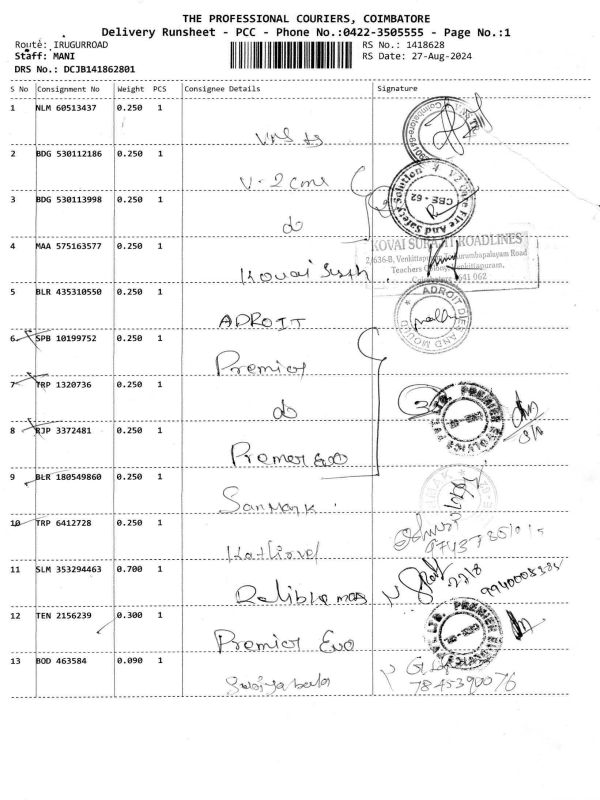 THE PROFESSIONAL COURIERS, COIMBATORE
Delivery Runsheet - PCC - Phone No.:0422-3505555 - Page No.:1
Route: IRUGURROAD RS No.: 1418628
Staff: MANI RS Date: 27-Aug-2024
DRS No.: DCJB141862801
S No Consignment No Weight PCS Consignee Details Signature
1 NLM 60513437 0.250 1
2 BDG 530112186 0.250 1
V-2 Core
3 BDG 530113998 0.250 1
do
CBE - 62
4 MAA 575163577 0.250 1
KOVAI ROADLINES
Teachers Colony, Venkittapuram,
641 062
5 BLR 435310550 0.250 1
ADROIT
ADROIT DIES AND MOULD
6 SPB 10199752 0.250 1
Premier
7 TRP 1320736 0.250 1
do
3
8 RJP 3372481 0.250 1
Premier Evo
9 BLR 180549860 0.250 1
Sanmark
10 TRP 6412728 0.250 1
11 SLM 353294463 0.700 1
12 TEN 2156239 0.300 1
Premier Evo
13 BOD 463584 0.090 1
7845390076